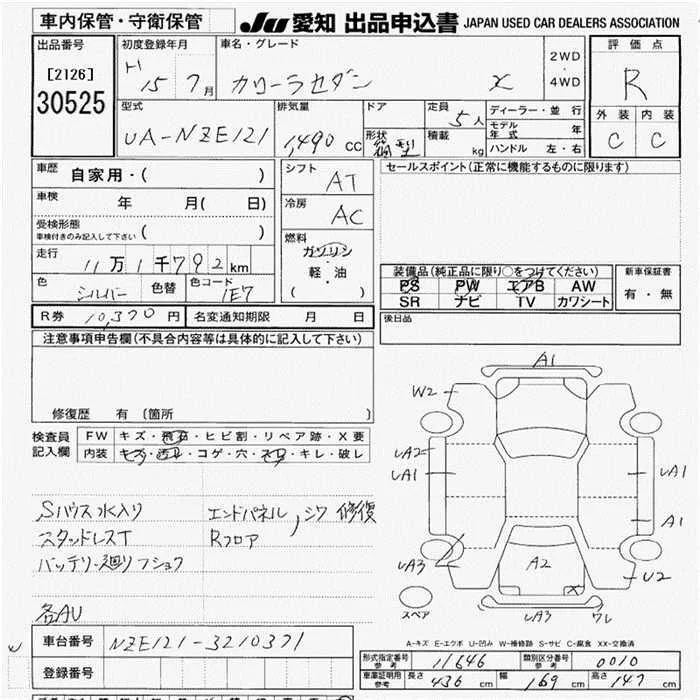 車内保管・守衛保管
JU 愛知 出品申込書 JAPAN USED CAR DEALERS ASSOCIATION
出品番号
[2126]
30525
初度登録年月
H 15 7月
車名・グレード
カローラセダン X
2WD
・
4WD
評価点
R
外装 内装
C C
型式
UA-NZE121
排気量
1,490 cc
ドア
形状
箱型
定員
5人
積載
kg
ディーラー・並行
モデル年式 年
ハンドル 左・右
車歴
自家用・( )
車検
年 月( 日)
受検形態
車検付きのみ記入して下さい ( )
走行
11万1千792km
色
シルバー
色替
色コード
1E7
シフト
AT
冷房
AC
燃料
ガソリン
軽・油
( )
セールスポイント(正常に機能するものに限ります)
装備品(純正品に限り○をつけてください)
PS PW エアB AW
SR ナビ TV カワシート
新車保証書
有・無
後日品
R券 10,370円 名変通知期限 月 日
注意事項申告欄(不具合内容等は具体的に記入して下さい)
修復歴 有 〔箇所 〕
検査員記入欄
FW キズ・飛石・ヒビ割・リペア跡・X要
内装 キズ・汚れ・コゲ・穴・スレ・キレ・破レ
Sハウス水入り エンドパネル,シワ 修復
スタッドレスT Rフロア
バッテリー廻りフショク
各AU
A1
W2
UA2
UA1
UA1
A1
UA3
A2
U2
X
UA3 ワレ
スペア
A-キズ E-エクボ U-凹み W-補修跡 S-サビ C-腐食 XX-交換済
車台番号 NZE121-3210371
登録番号
形式指定番号 参考 11646 類別区分番号 参考 0010
車庫証明用 参考 長さ 436 cm 幅 169 cm 高さ 147 cm